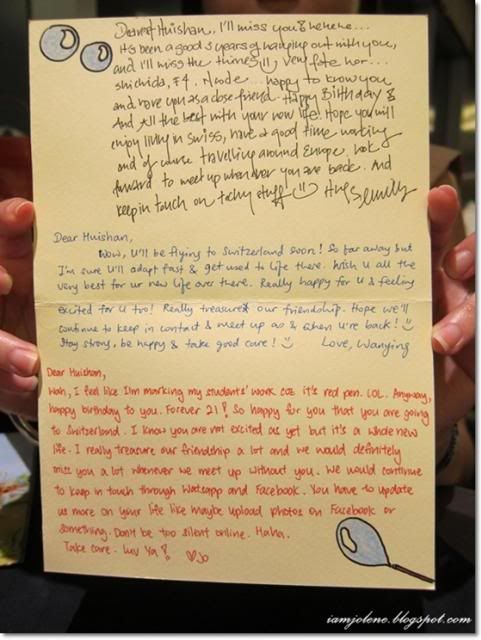 Dearest Huishan, I'll miss you & hehehe...
it's been a good 3 years of hanging out with you,
and I'll miss the times, very fate hor...
shichida, F4, Ncode... happy to know you
and have you as a close friend. Happy Birthday &
And All the best with your new life! Hope you will
enjoy living in Swiss, have a good time working
and of course travelling around Europe. Look
forward to meet up whenever you are back. And
keep in touch on techy stuff :) Hugs
Dear Huishan,
Wow, U'll be flying to Switzerland soon! So far away but
I'm sure U'll adapt fast & get used to life there. Wish U all the
very best for ur new life over there. Really happy for U & feeling
excited for U too! Really treasure our friendship. Hope we'll
continue to keep in contact & meet up as & when U're back! :)
Stay strong, be happy & take good care! :) Love, Wanying
Dear Huishan,
Wah, I feel like I'm marking my students' work coz it's red pen. LOL. Anyway,
happy birthday to you. Forever 21! So happy for you that you are going
to Switzerland. I know you are not excited as yet but it's a whole new
life. I really treasure our friendship a lot and we would definitely
miss you a lot whenever we meet up without you. We would continue
to keep in touch through Watsapp and Facebook. You have to update
us more on your life like maybe upload photos on Facebook or
something. Don't be too silent online. Haha.
Take care. Luv Ya! ♡Jo
iamjolene.blogspot.com